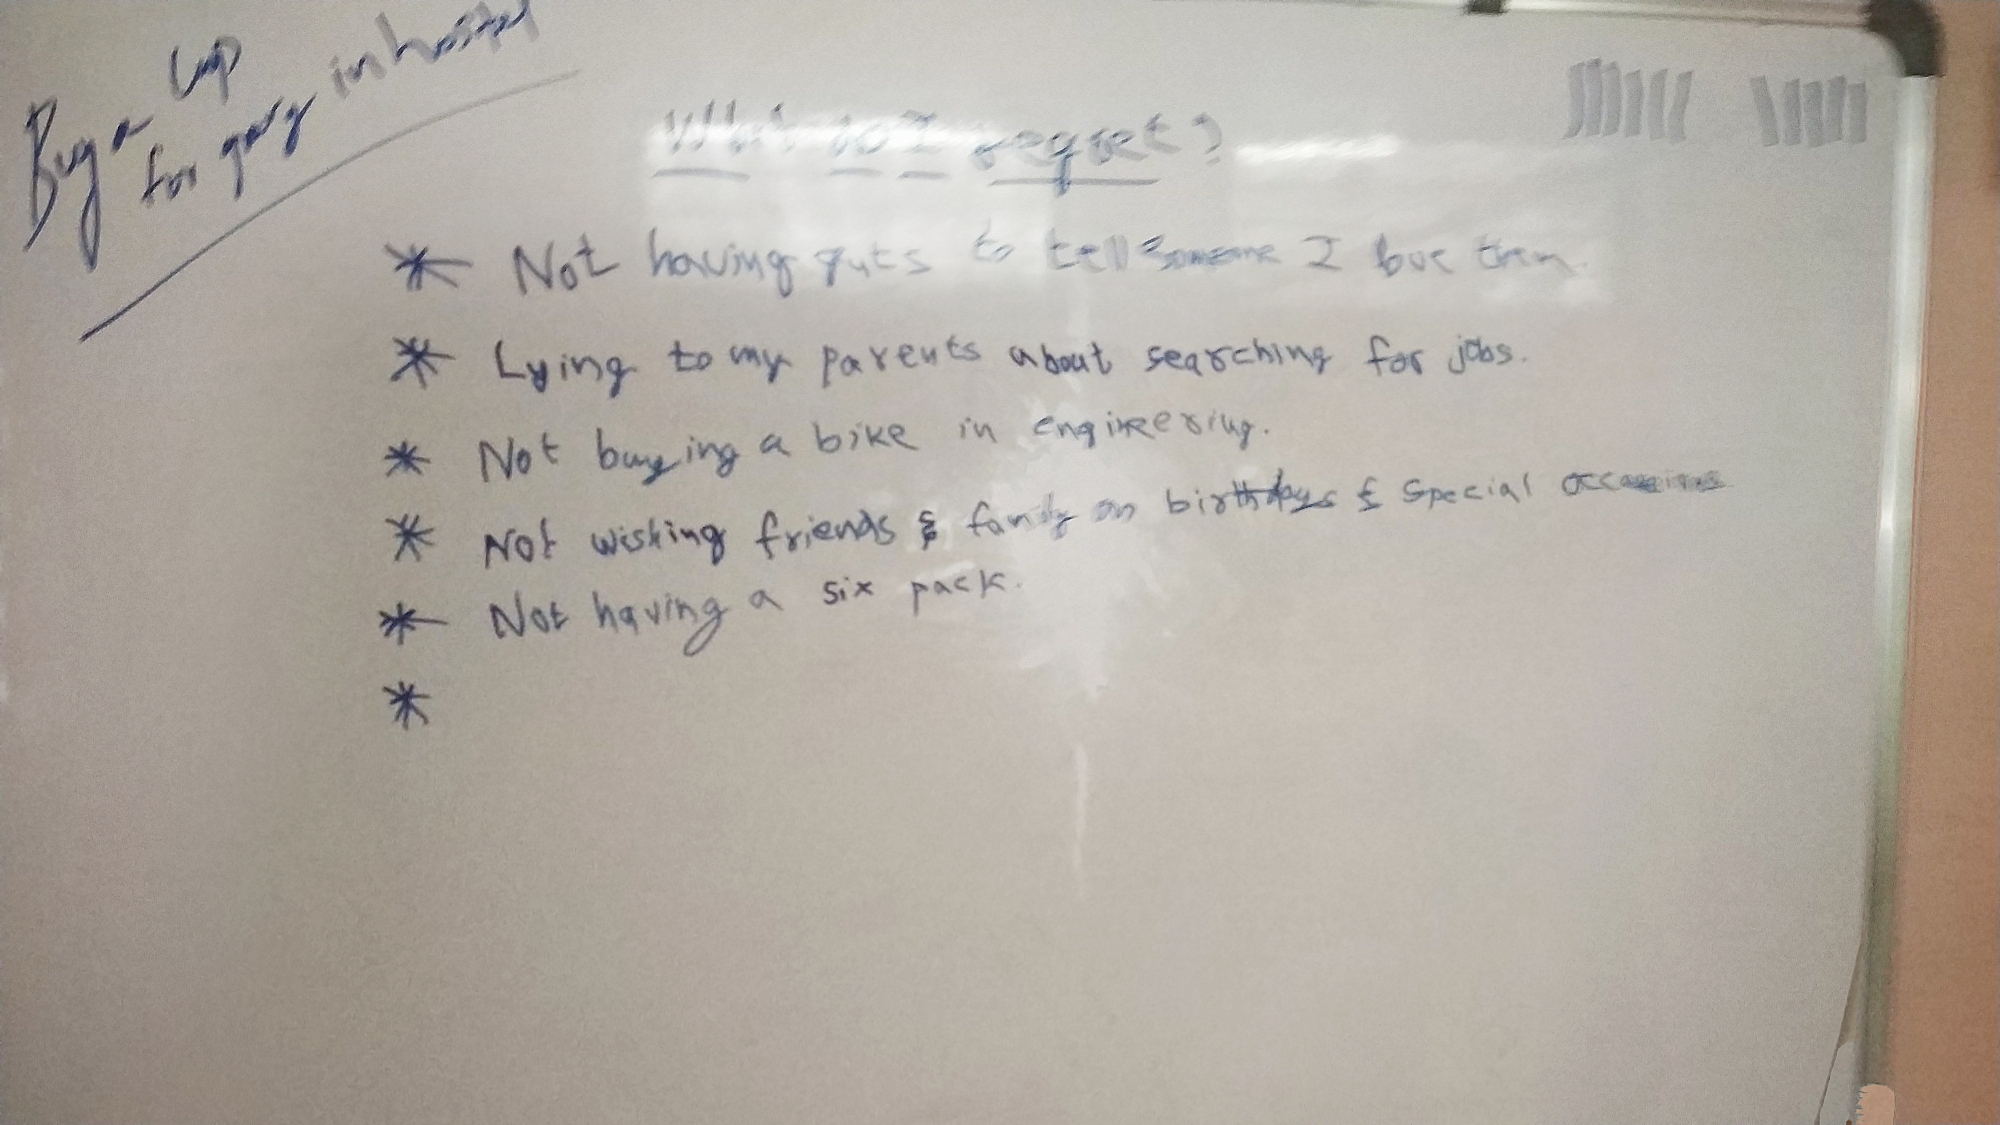 Buy a cup
for gary in hostel
What do I regret?
* Not having guts to tell someone I love them
* Lying to my parents about searching for jobs.
* Not buying a bike in engineering.
* Not wishing friends & family on birthdays & special occassions
* Not having a six pack.
*